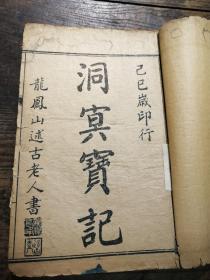 己巳歲印行
洞冥寶記
龍鳳山述古老人書